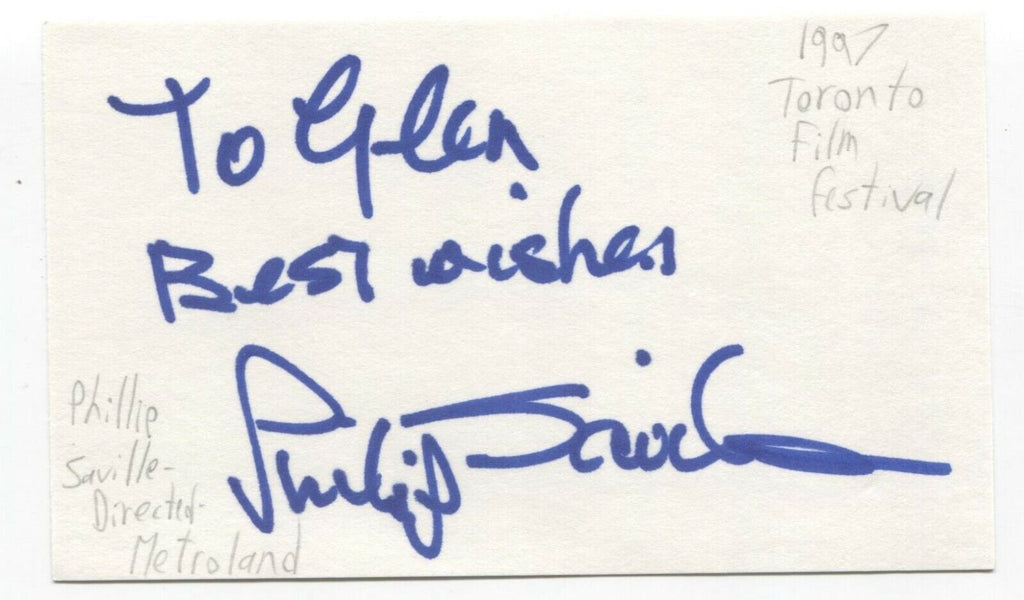 1997
Toronto
Film
Festival
To Glen
Best wishes
Philip Saville
Phillip
Saville-
Directed-
Metroland